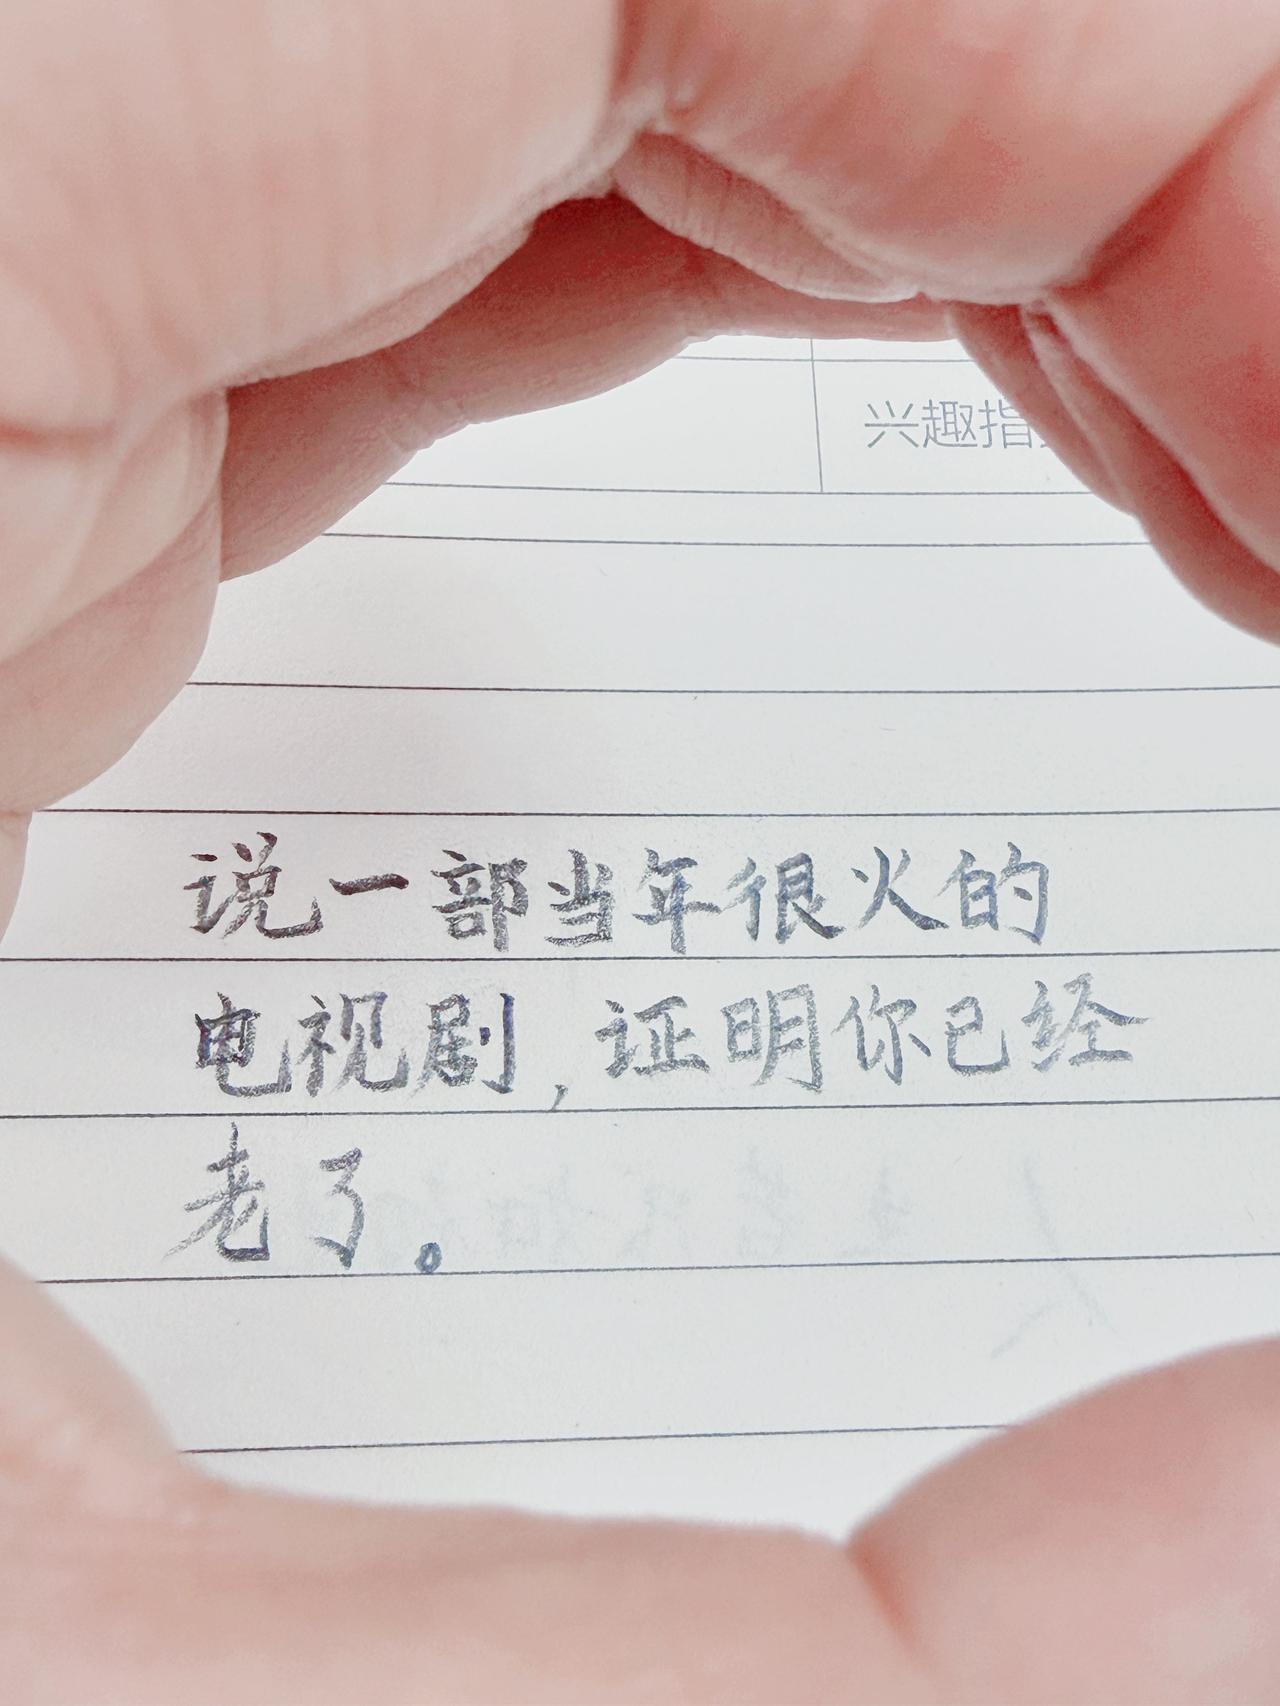 兴趣指
说一部当年很火的
电视剧，证明你已经
老了。